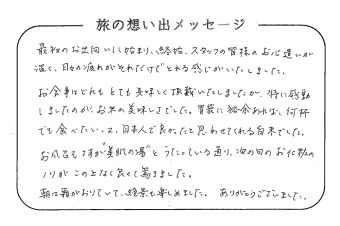 旅の想い出メッセージ
最初のお出向いに始まり、終始、スタッフの皆様のお心遣いが
深く、日々の疲れがそれだけでとれる感じがいたしました。
お食事はどれも とても美味しく頂戴いたしましたが、特に感動
しましたのが、お米の美味しさでした。胃袋に余裕あれば、何杯
でも食べたい…又、日本人で良かったと思わせてくれる白米でした。
お風呂もさすが"美肌の湯"とうたっている通り、次の日のお化粧の
ノリがこの上なく良くて驚きました。
朝は霜がおりていて、絵景も楽しめました。 ありがとうございました。